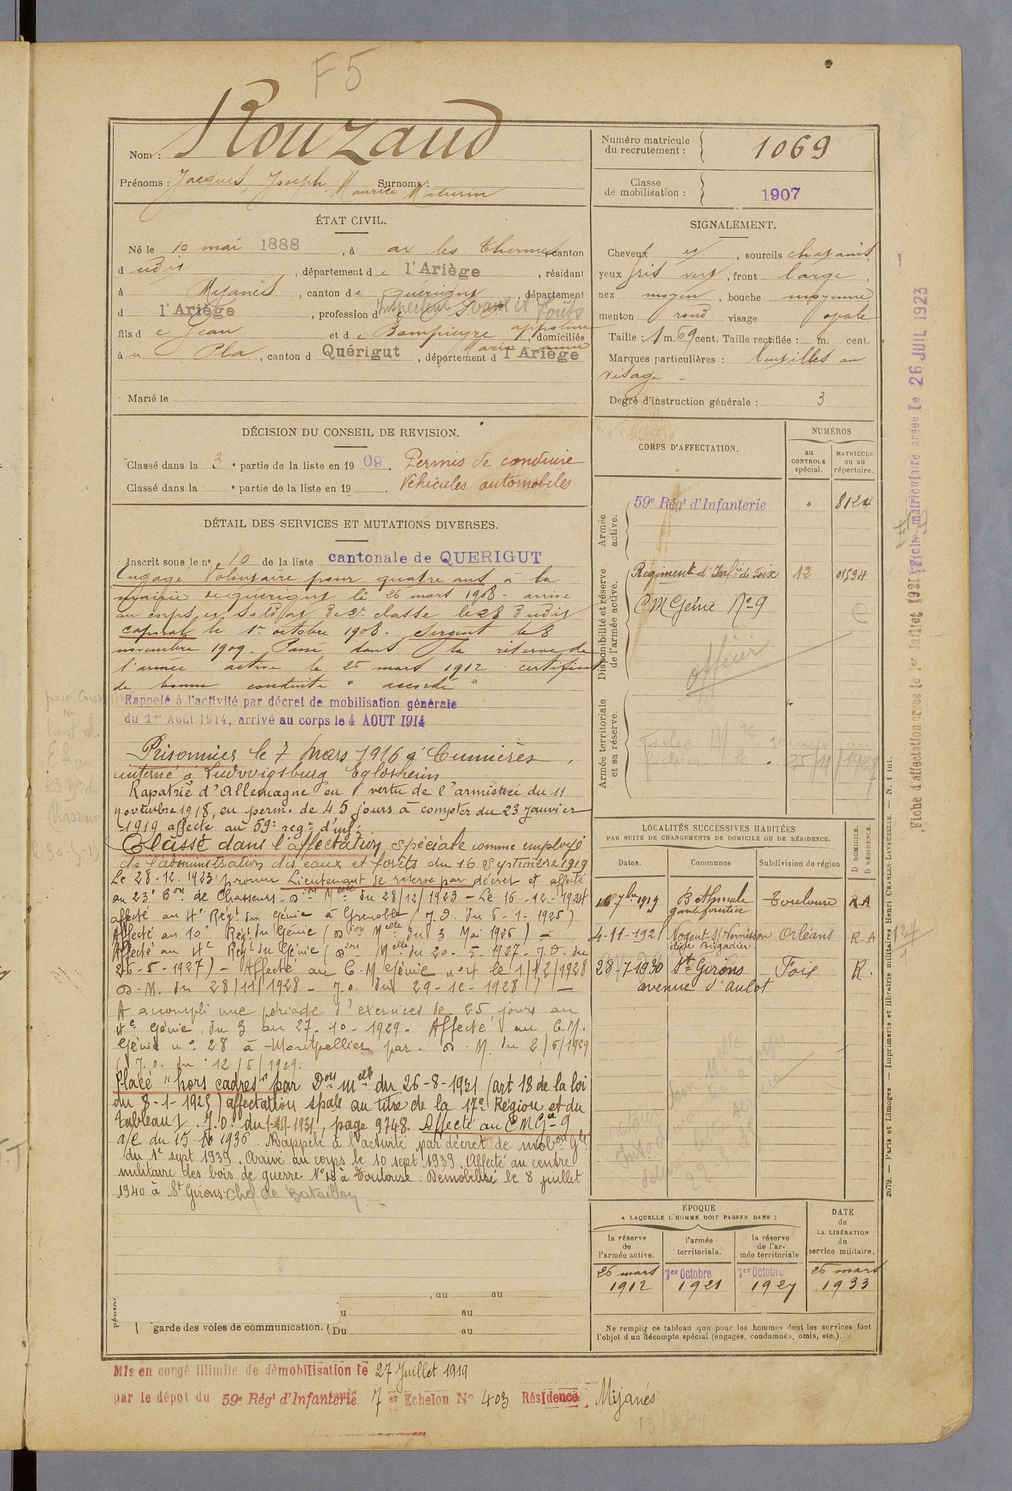 F5
Nom : Rouzaud
Prénoms : Jacques, Joseph, Maurice Maturin Surnoms :
Numéro matricule du recrutement : 1069
Classe de mobilisation : 1907
ÉTAT CIVIL.
Né le 10 mai 1888, à ax les thermes canton
d udit, département de l'Ariège, résidant
à Mijanès, canton de Quérigut, département
d l'Ariège, profession d Inspecteur Eaux et Forêts
fils de Jean et de Bompieyre appoline Marie anne, domiciliés
à u Pla, canton d Quérigut, département d l'Ariège
Marié le
SIGNALEMENT.
Cheveux et, sourcils chatains,
yeux gris vert, front large,
nez moyen, bouche moyenne
menton rond visage ovale
Taille : 1 m. 69 cent. Taille rectifiée : m. cent.
Marques particulières : lentilles au
visage -
Degré d'instruction générale : 3
DÉCISION DU CONSEIL DE REVISION.
Classé dans la 3e partie de la liste en 1909. Permis de conduire
Classé dans la e partie de la liste en 19 Véhicules automobiles
DÉTAIL DES SERVICES ET MUTATIONS DIVERSES.
Inscrit sous le n° 10 de la liste cantonale de QUERIGUT
Engagé Volontaire pour quatre ans à la
mairie de querigut le 26 mars 1908 - arrivé
au corps et soldat de 2e classe le 28 dudit
caporal le 1er octobre 1908. Sergent le 8
novembre 1909. Passé dans la réserve de
l'armée active le 26 mars 1912. certificat
de bonne conduite "accordé"
Rappelé à l'activité par décret de mobilisation générale
du 1er Août 1914, arrivé au corps le 4 AOUT 1914
Prisonnier le 7 Mars 1916 à Cumières,
interné à Ludwigsburg Eglosheim
Rapatrié d'Allemagne en vertu de l'armistice du 11
novembre 1918, en perm. de 45 jours à compter du 23 janvier
1919 affecté au 59e regt d'inf.
Classé dans l'affectation spéciale comme employé
de l'administration des eaux et forêts du 16 Septembre 1919
Le 28-12-1923 promu Lieutenant de réserve par décret et affecté
au 23e Bon de Chasseurs - Don Melle du 28/12/1923 - Le 16-12-1924
affecté au 4e Régt du Génie à Grenoble (J.O. du 6-1-1925)
Affecté au 10e Régt du Génie (Don Melle du 3 Mai 1926) -
Affecté au 4e Régt du Génie (Don Melle du 20-5-1927 - J.O. du
26-5-1927) - Affecté au C.M. Génie n° 4 le 1/12/1928
D.M. du 28/11/1928 - J.O. du 29-12-1928) -
A accompli une période d'exercices de 25 jours au
4e Génie, du 3 au 27-10-1929. Affecté au C.M.
Génie n° 28 à Montpellier par D.M. du 2/5/1929
(J.O. du 12/5/1929.
Placé "hors cadres" par Don Melle du 26-8-1931 (art 18 de la loi
du 8-1-1925) affectation spale au titre de la 17e Région et du
tableau I. J.O. du 1-09-1931, page 9748. Affecté au CMGie 9
a/c. du 15 1936. Rappelé à l'activité par décret de mobon Gle
du 1e sept 1939. Arrivé au corps le 10 sept 1939. Affecté au centre
militaire des bois de guerre N°18 à Toulouse. Démobilisé le 8 juillet
1940 à St Girons Chef de Bataillon
, au au
u au
garde des voies de communication. ( Du au
CORPS D'AFFECTATION.
NUMÉROS
au CONTROLE spécial.
MATRICULE ou au répertoire.
Armée active.
59e Régt d'Infanterie " 8124
Disponibilité et réserve de l'armée active.
Régiment d'Infie de Foix 12 01534
CM Génie N° 9
officier
Armée territoriale et sa réserve.
25/11/1929
LOCALITÉS SUCCESSIVES HABITÉES
PAR SUITE DE CHANGEMENTS DE DOMICILE OU DE RÉSIDENCE.
Dates. Communes Subdivision de région D. DOMICILE. R. RÉSIDENCE.
16 7bre 1919 garde forestier Toulouse R.A
4-11-1921 Nogent S/ Vernisson élève Brigadier Orléans R.A
28-7-1930 St Girons Foix R.
avenue d'Aulot
ÉPOQUE
A LAQUELLE L'HOMME DOIT PASSER DANS :
la réserve de l'armée active. l'armée territoriale. la réserve de l'armée territoriale
DATE de LA LIBÉRATION du service militaire.
26 mars 1912 1er Octobre 1921 1er Octobre 1927 26 mars 1933
Ne remplir ce tableau que pour les hommes dont les services font
l'objet d'un décompte spécial (engagés, condamnés, omis, etc.).
Mis en congé illimité de démobilisation le 27 Juillet 1919
par le dépôt du 59e Régt d'Infanterie 7 er Echelon N° 403 Résidence Mijanès
Fiche d'affectation créée le 1er Juillet 1921 / Fiche matriculaire créée le 26 JUIL 1923
2079. — Paris et Limoges. — Imprimerie et librairie militaires Henri CHARLES-LAVAUZELLE. — N. 1 int.